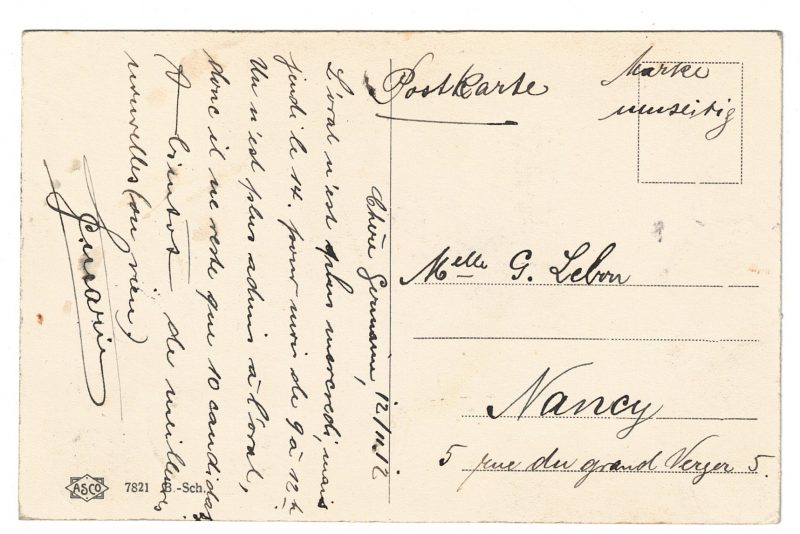 Postkarte
Marke
umseitig
Chère Germaine, 12/11.12
L'oral n'est plus mercredi, mais
jeudi le 14. pour moi de 9 à 12h
Un n'est plus admis à l'oral,
donc il ne reste que 10 candidats
A bientôt de meilleures
nouvelles (ou rien)
Melle G. Lebon
Nancy
5 rue du grand Verger 5.
ASCO 7821 B.-Sch.